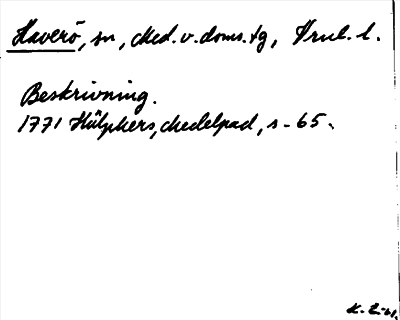 Haverö, sn, Med. v. doms. tg, Vrnl. l.
Beskrivning.
1771 Hülphers, Medelpad, s. 65.